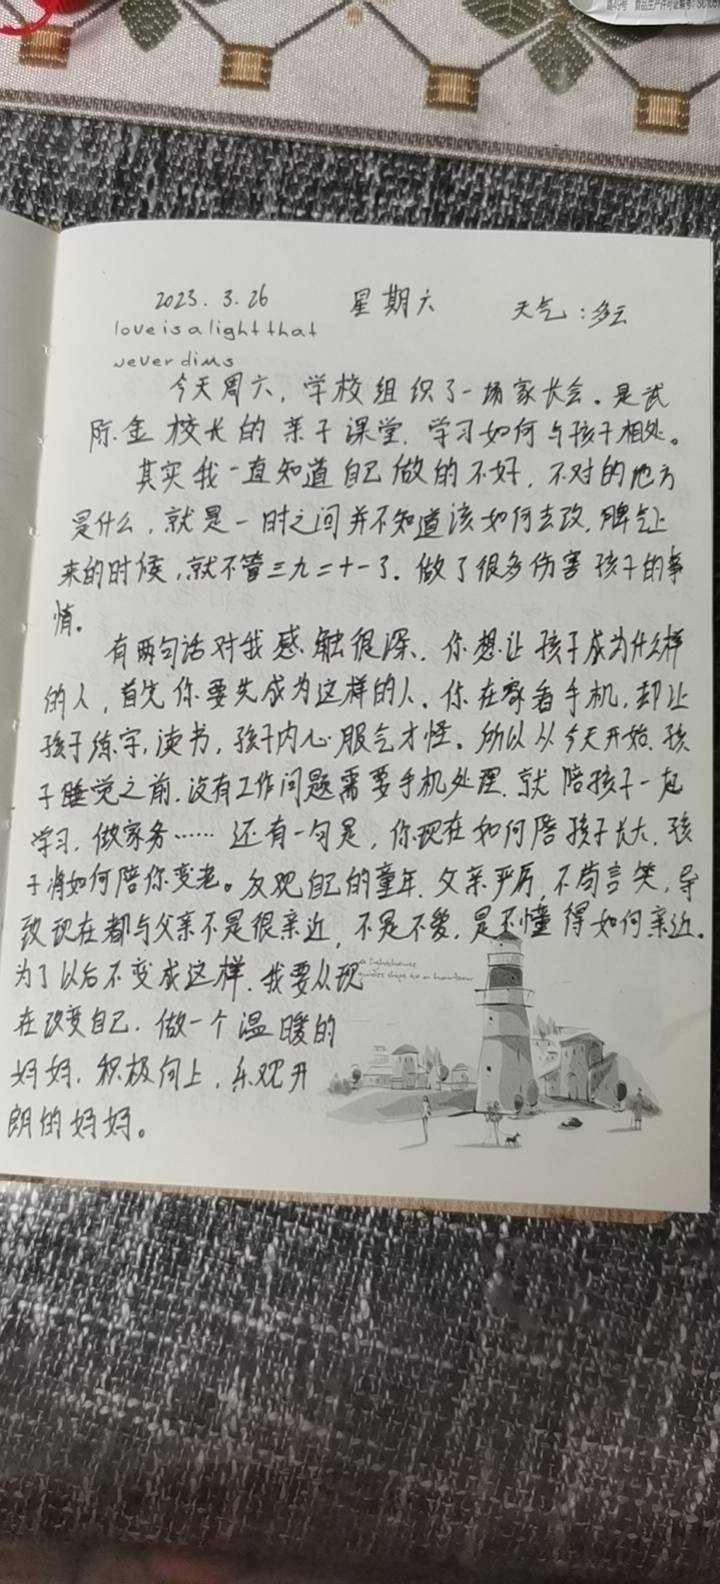 2023.3.26 星期六 天气：多云
love is a light that
never dims
今天周六，学校组织了一场家长会。是试
际金校长的亲子课堂，学习如何与孩子相处。
其实我一直知道自己做的不好，不对的地方
是什么，就是一时之间并不知道该如何去改，脾气上
来的时候，就不管三九二十一了。做了很多伤害孩子的事
情。
有两句话对我感触很深，你想让孩子成为什么样
的人，首先你要先成为这样的人。你在家看手机，却让
孩子练字，读书，孩子内心服气才怪。所以从今天开始，孩
子睡觉之前，没有工作问题需要手机处理，就陪孩子一起
学习，做家务……还有一句是，你现在如何陪孩子长大，孩
子将如何陪你变老。反观自己的童年，父亲严厉，不苟言笑，导
致现在都与父亲不是很亲近，不是不爱，是不懂得如何亲近。
为了以后不变成这样，我要从现
a lighthouse
guides ships to a harbour
在改变自己，做一个温暖的
妈妈，积极向上，乐观开
朗的妈妈。